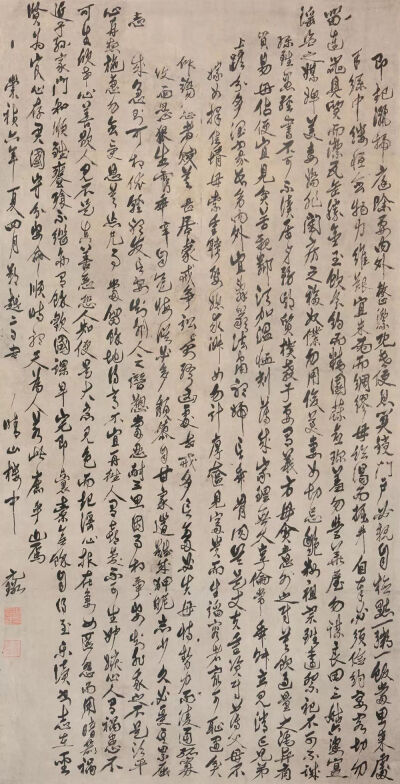 即起灑掃庭除要內外整潔既昏便息關鎖門戶必親自檢點一粥一飯當思來處
不易半絲半縷恆念物力維艱宜未雨而綢繆毋臨渴而掘井自奉必須儉約宴客切勿
留連器具質而潔瓦缶勝金玉飲食約而精園蔬愈珍羞勿營華屋勿謀良田三姑六婆實
淫盜之媒婢美妾嬌非閨房之福奴僕勿用俊美妻妾切忌艷粧祖宗雖遠祭祀不可不誠
子孫雖愚經書不可不讀居身務期質樸教子要有義方毋貪意外之財莫飲過量之酒與肩挑
貿易毋佔便宜見貧苦親鄰須加溫恤刻薄成家理無久享倫常乖舛立見消亡兄弟
叔姪須分多潤寡長幼內外宜嚴肅法辭聽婦言乖骨肉豈是丈夫重資財薄父母不
嫁女擇佳婿毋索重聘娶媳求淑女勿計厚奩見富貴而生諂容者最可恥遇貧
作驕態者賤莫甚居家戒爭訟訟則終凶處世戒多言言多必失毋恃勢力而凌逼孤寡
殺生禽乖僻自是悔誤必多頹惰自甘家道難成狎昵惡少久必受其累屈
志老成急則可相依輕聽發言安知非人之譖愬當忍耐三思因事相爭安知非我之不是須平
心再想施惠勿念受恩莫忘凡事當留餘地得意不宜再往人有喜慶不可生妒嫉心人有禍患不
可生欣幸心善欲人見不是真善惡恐人知便是大惡見色而起淫心報在妻女匿怨而用暗箭禍
延子孫家門和順雖饔飧不繼亦有餘歡國課早完即囊橐無餘自得至樂讀書志在聖
賢為官心存君國守分安命順時聽天為人若此庶乎近焉
崇禎六年夏四月 晴山樓中